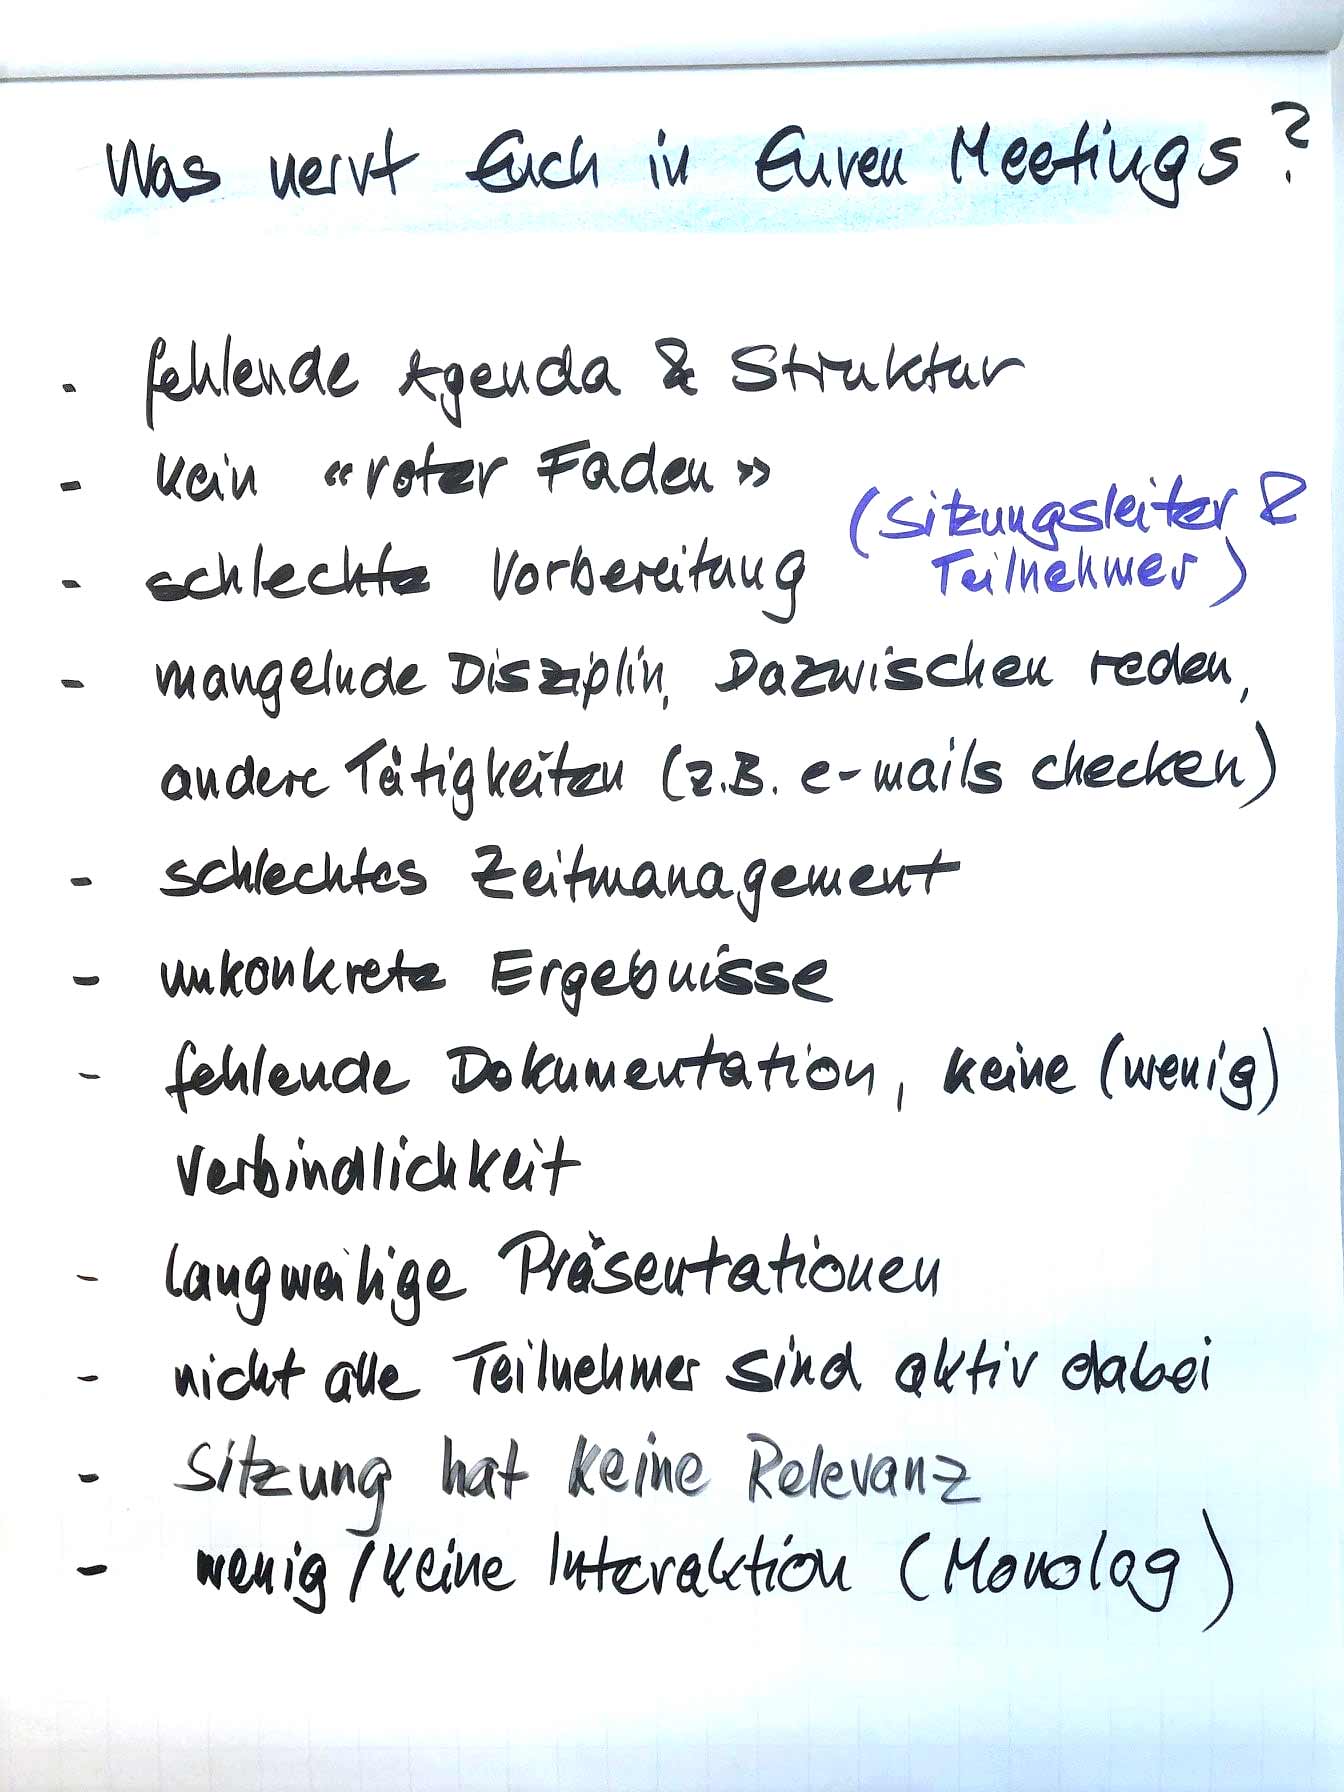 Was nervt Euch in Euren Meetings?
- fehlende Agenda & Struktur
- kein «roter Faden»
(Sitzungsleiter &
- schlechte Vorbereitung Teilnehmer)
- mangelnde Disziplin, Dazwischen reden,
andere Tätigkeiten (z.B. e-mails checken)
- schlechtes Zeitmanagement
- unkonkrete Ergebnisse
- fehlende Dokumentation, keine (wenig)
Verbindlichkeit
- langweilige Präsentationen
- nicht alle Teilnehmer sind aktiv dabei
- Sitzung hat keine Relevanz
- wenig/keine Interaktion (Monolog)